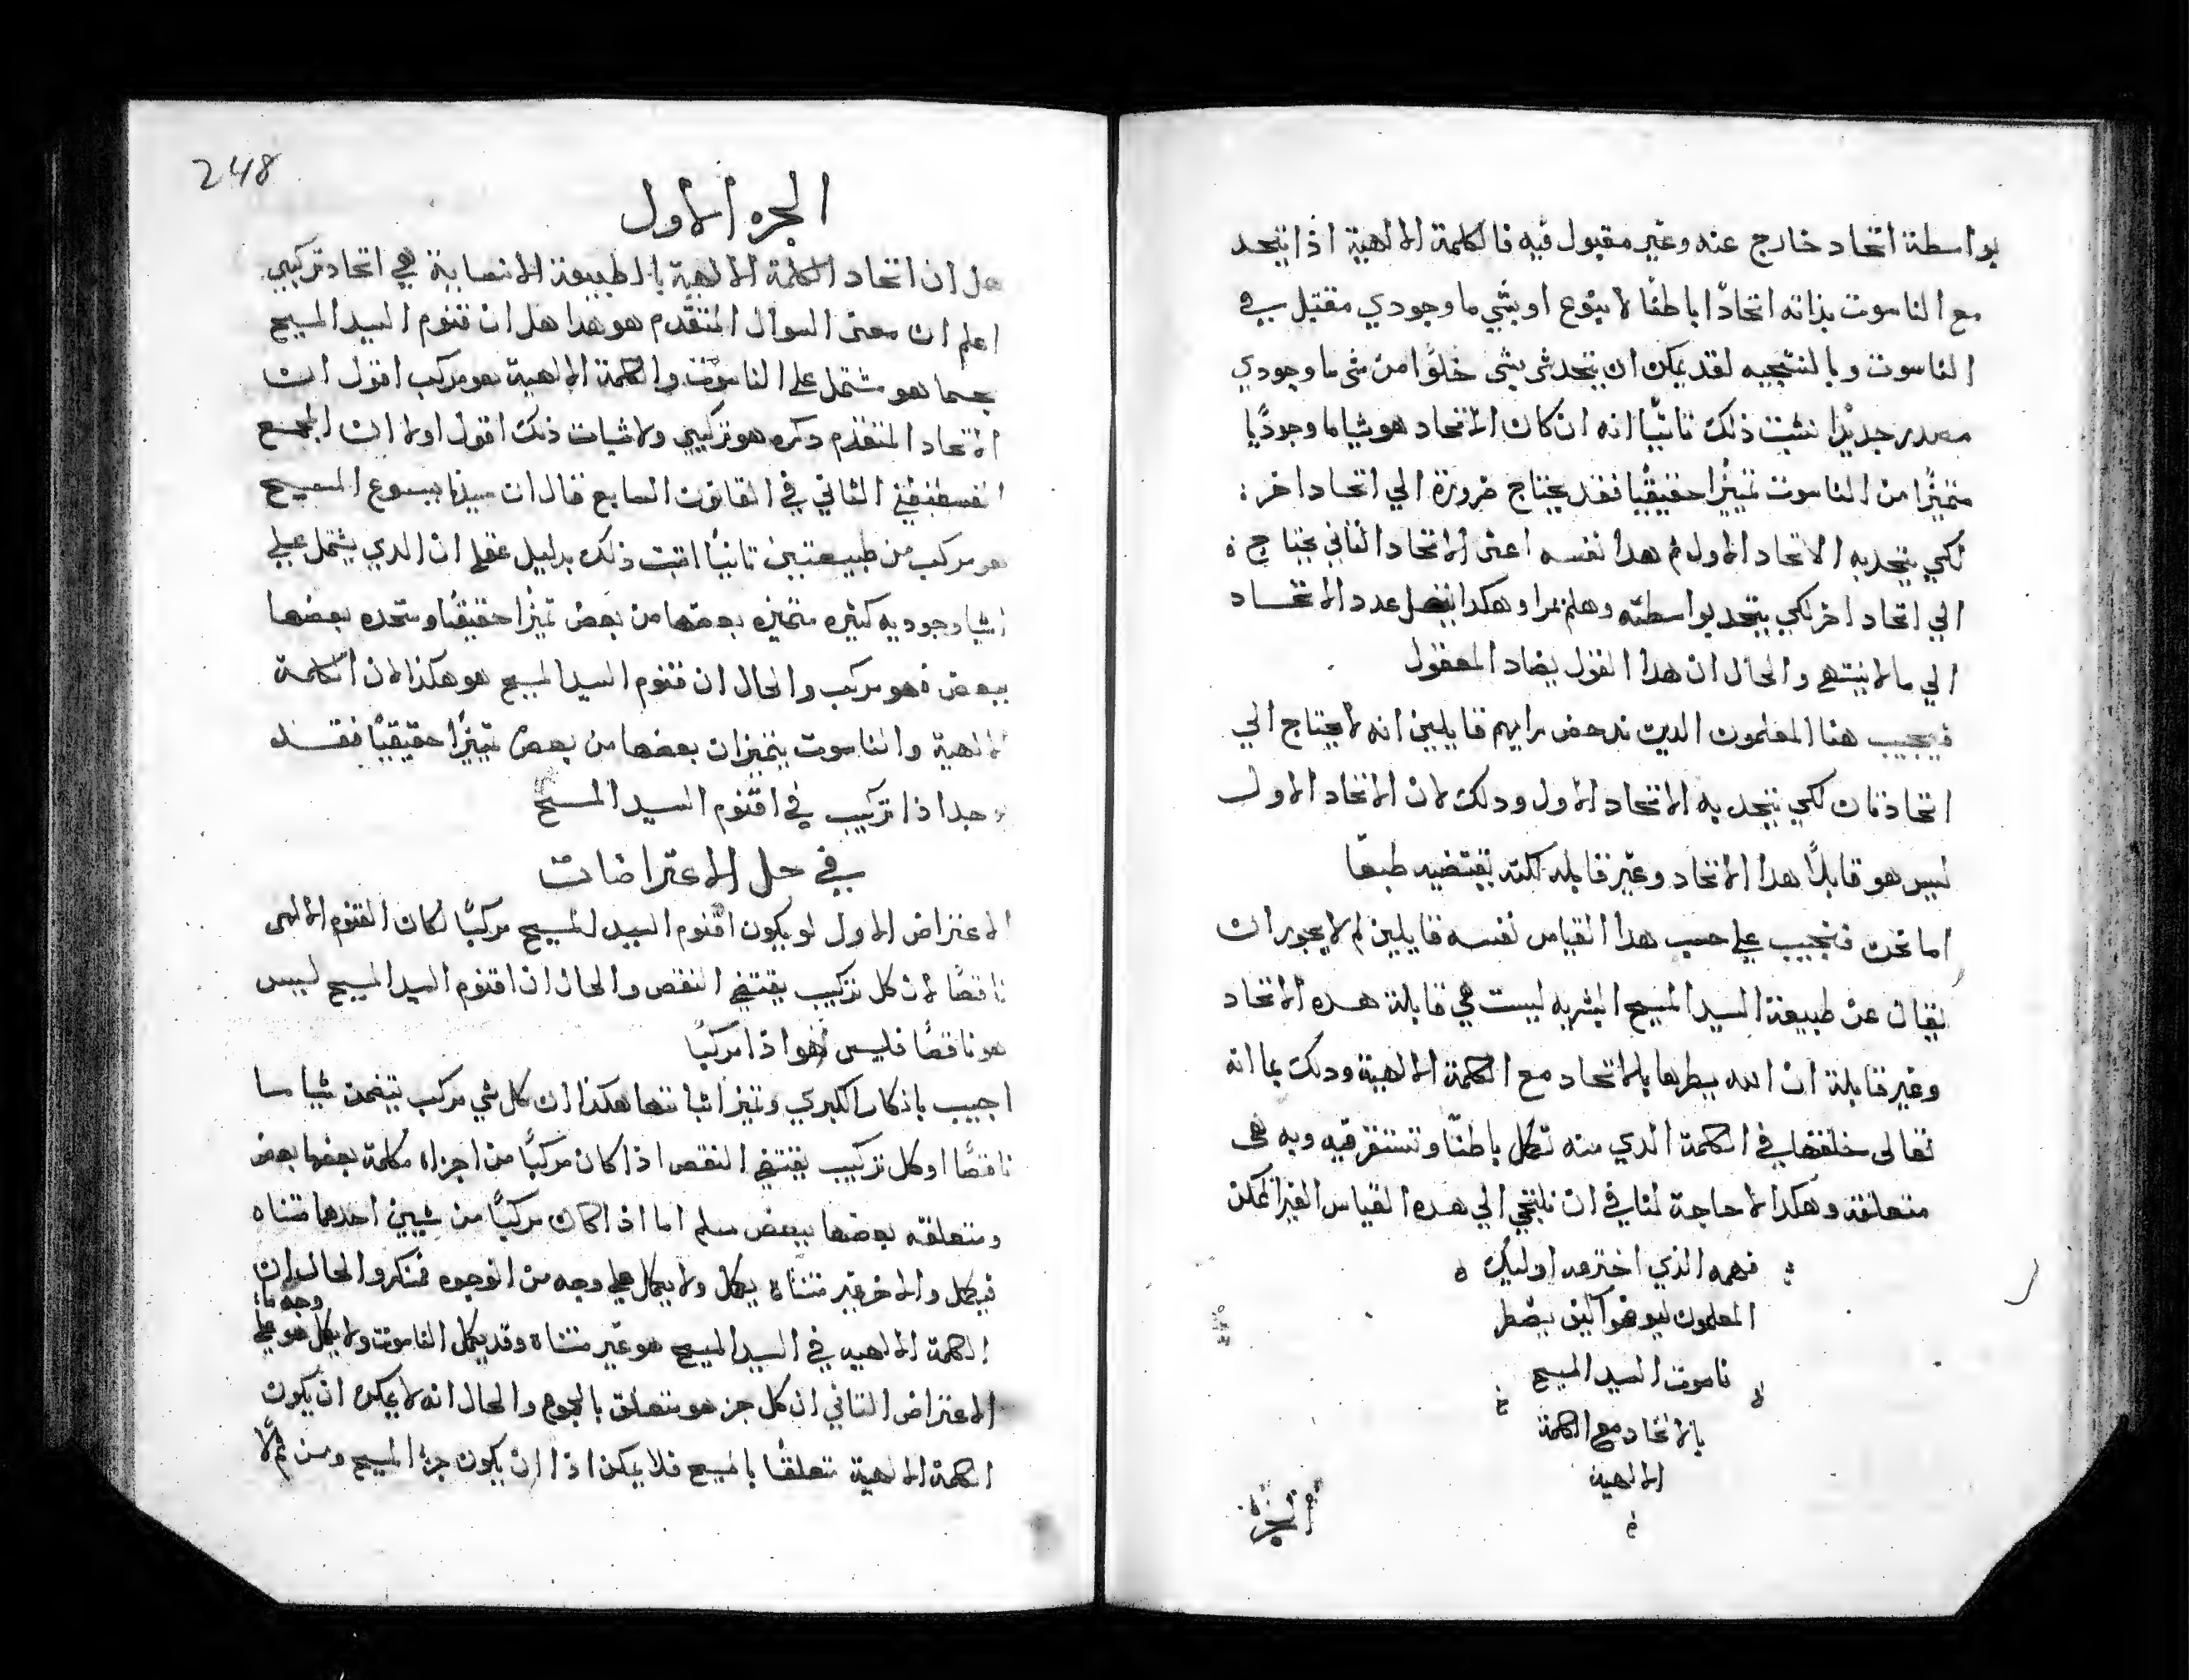 بواسطة اتحاد خارج عنه وغير مقبول فيه فالكلمة الالهية اذا تتحد
مع الناسوت بذاته اتحادًا باطنًا لا بنوع او بشي ما وجودي مقتبل في
الناسوت وبالنتيجيه لقد يمكن ان يتحد شي بشي خلوًا من شي ما وجودي
مصدر جديدًا نثبت ذلك ثانيًا انه ان كان الاتحاد هو شيا ما وجوديًا
متميزًا من الناسوت تميزًا حقيقيًا فقد يحتاج ضرورة الي اتحاد اخر
لكي يتحد به الاتحاد الاول ثم هدا نفسه اعني الاتحاد الثاني يحتاج
الي اتحاد اخر لكي يتحد بواسطته وهلم جرا وهكدا يتصل عدد الاتحاد
الي ما لا ينتهي والحال ان هدا القول يضاد المعقول
فيجيب هنا المعلمون الدين ندحض رايهم قايلين انه لا يحتاج الي
اتحاد ثان لكي يتحد به الاتحاد الاول ودلك لان الاتحاد الاول
ليس هو قابلًا هدا الاتحاد وغير قابله لكنه يقتضيه طبعًا
اما نحن فنجيب علي حسب هدا القياس نفسه قايلين لم لا يجوز ان
يقال عن طبيعة السيد المسيح البشريه ليست هي قابلة هده الاتحاد
وغير قابلة ان الله يسطرها بالاتحاد مع الكلمة الالهية ودلك بما انه
تعالى خلقها في الكلمة الدي منه تكمل باطنًا وتستقر فيه وبه هي
متعلقة وهكدا لا حاجة لنا في ان نلتجي الي هده القياس الغير الممكن
فهمه الذي اخترعه اوليك
المعلمون ليوضحوا كيف يضطر
ناسوت السيد المسيح
بالاتحاد مع الكلمة
الالهية
الجزء
248
الجزء الاول
هل ان اتحاد الكلمة الالهية بالطبيعة الانسانية هي اتحاد تركيبي
اعلم ان معنى السوال المتقدم هو هدا هل ان قنوم السيد المسيح
بحسبما هو مشتمل على الناسوت والكلمة الالهية هو مركب اقول ان
الاتحاد المتقدم دكره هو تركيبي ولاثبات دلك اقول اولا ان المجمع
القسطنطيني الثاني في القانون السابع قال ان سيدنا يسوع المسيح
هو مركب من طبيعتين ثانيًا اثبت ذلك بدليل عقلي ان الدي يشتمل علي
اشيا وجوديه كثيره متميزه بعضها من بعض تميزًا حقيقيًا ومتحده بعضها
ببعض فهو مركب والحال ان قنوم السيد المسيح هو هكذا لان الكلمة
الالهية والناسوت يتميزان بعضها من بعض تميزًا حقيقيًا فقد
وجد اذا تركيب في اقنوم السيد المسيح
في حل الاعتراضات
الاعتراض الاول لو يكون اقنوم السيد المسيح مركبًا لكان القنوم الالهي
ناقصًا لان كل تركيب يقتضي النقص والحال ان اقنوم السيد المسيح ليس
هو ناقصًا فليس هو اذا مركبًا
اجيب باذكار الكبري وتميز اثباتها هكذا ان كل شي مركب يتضمن شيا ما
ناقصًا او كل تركيب يقتضي النقص اذا كان مركبًا من اجزاء مكلمة بعضها بعض
ومتعلقه بعضها ببعض مسلم اما اذا كان مركبًا من شيين احدهما متناه
فيكمل والاخر غير متناه يكمل ولا يكمل علي وجه من الوجوه فمنكر والحال ان
الكلمة الالهيه في السيد المسيح هو غير متناه وقد يكمل الناسوت ولا يكمل هو علي
وجه ما
الاعتراض الثاني ان كل جز هو متعلق بالمجموع والحال انه لا يمكن ان يكون
الكلمة الالهية متعلقًا بالمسيح فلا يمكن اذا ان يكون جزء المسيح ومن ثم لا